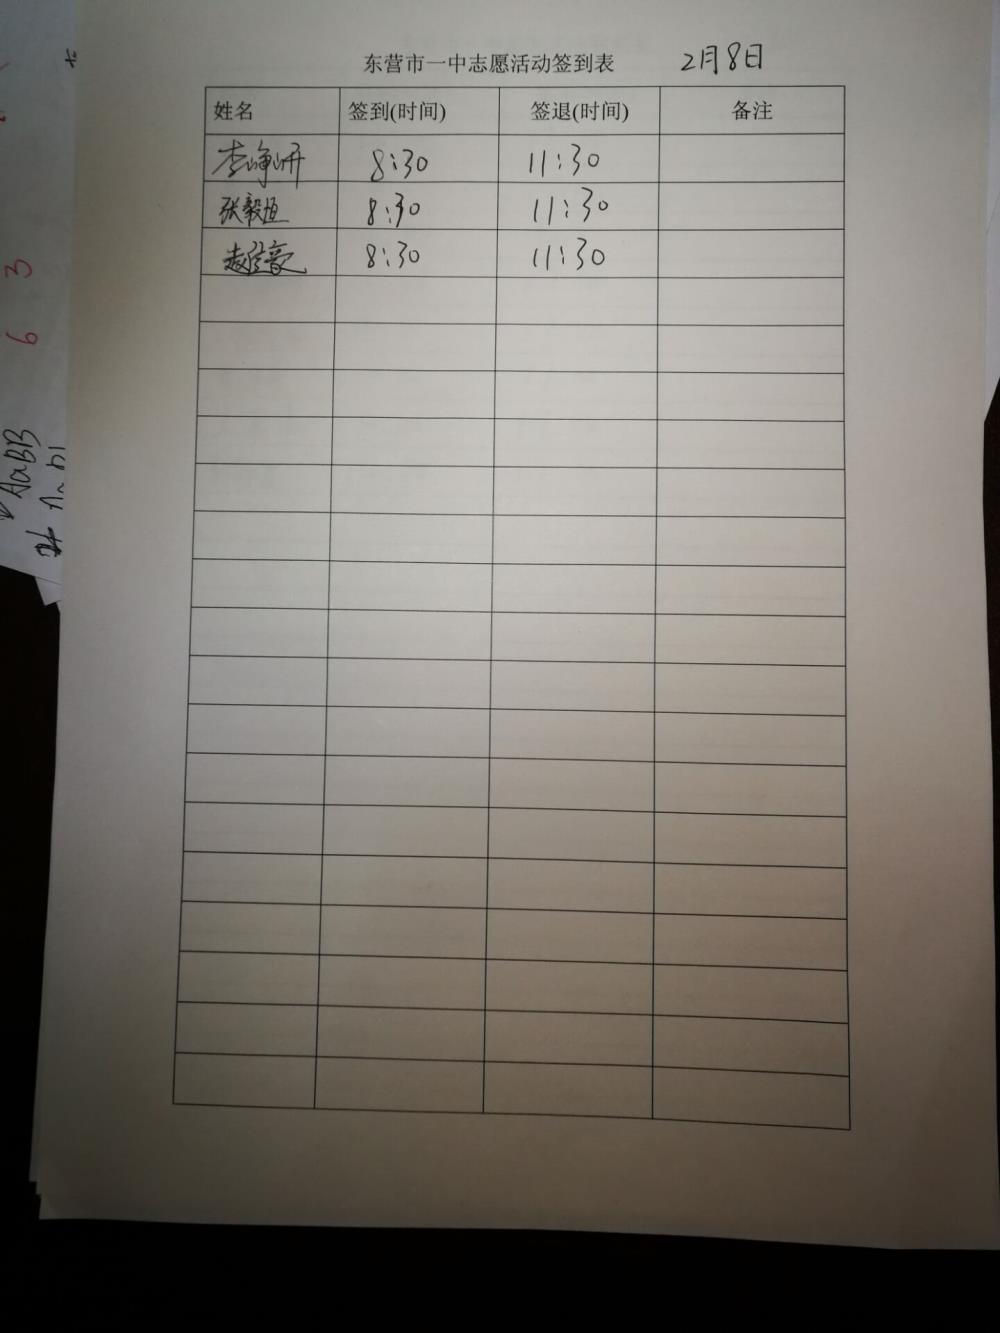 东营市一中志愿活动签到表 2月8日
姓名 签到(时间) 签退(时间) 备注
李峥岍 8:30 11:30
张毅恒 8:30 11:30
8:30 11:30
3
6
AaBB